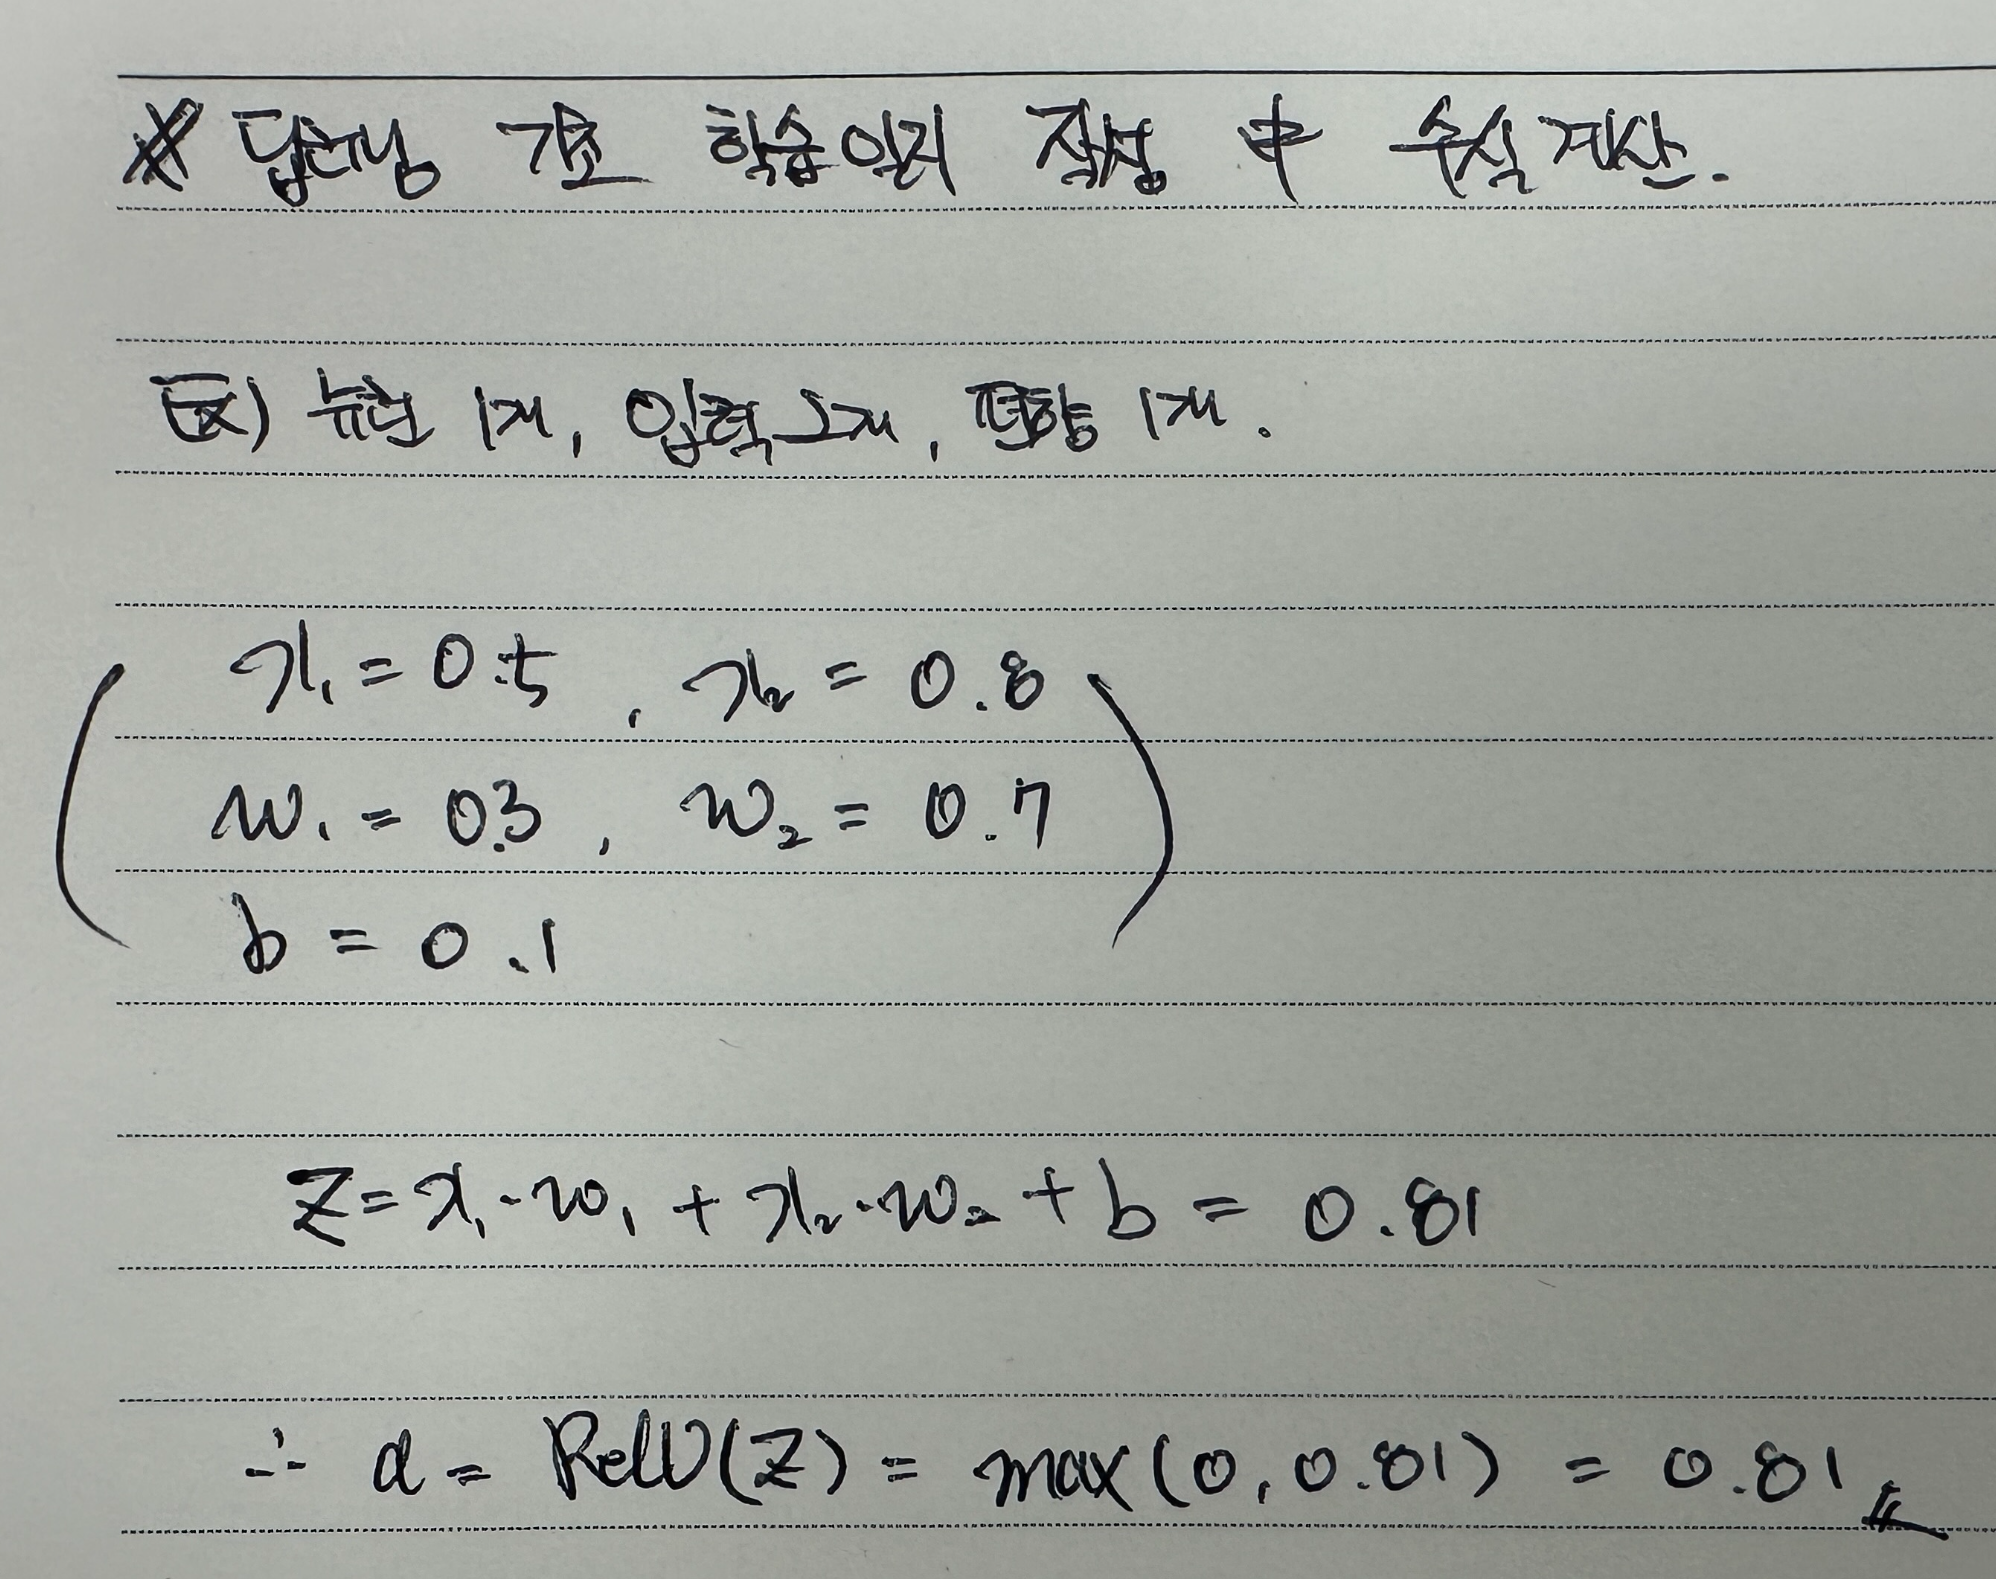 ※ 딥러닝 기초 학습일지 작성 中 수식 계산.
EX) 뉴런 1개, 입력 2개, 편향 1개.
x₁ = 0.5, x₂ = 0.8
w₁ = 0.3, w₂ = 0.7
b = 0.1
z = x₁·w₁ + x₂·w₂ + b = 0.81
∴ a = ReLU(z) = max(0, 0.81) = 0.81